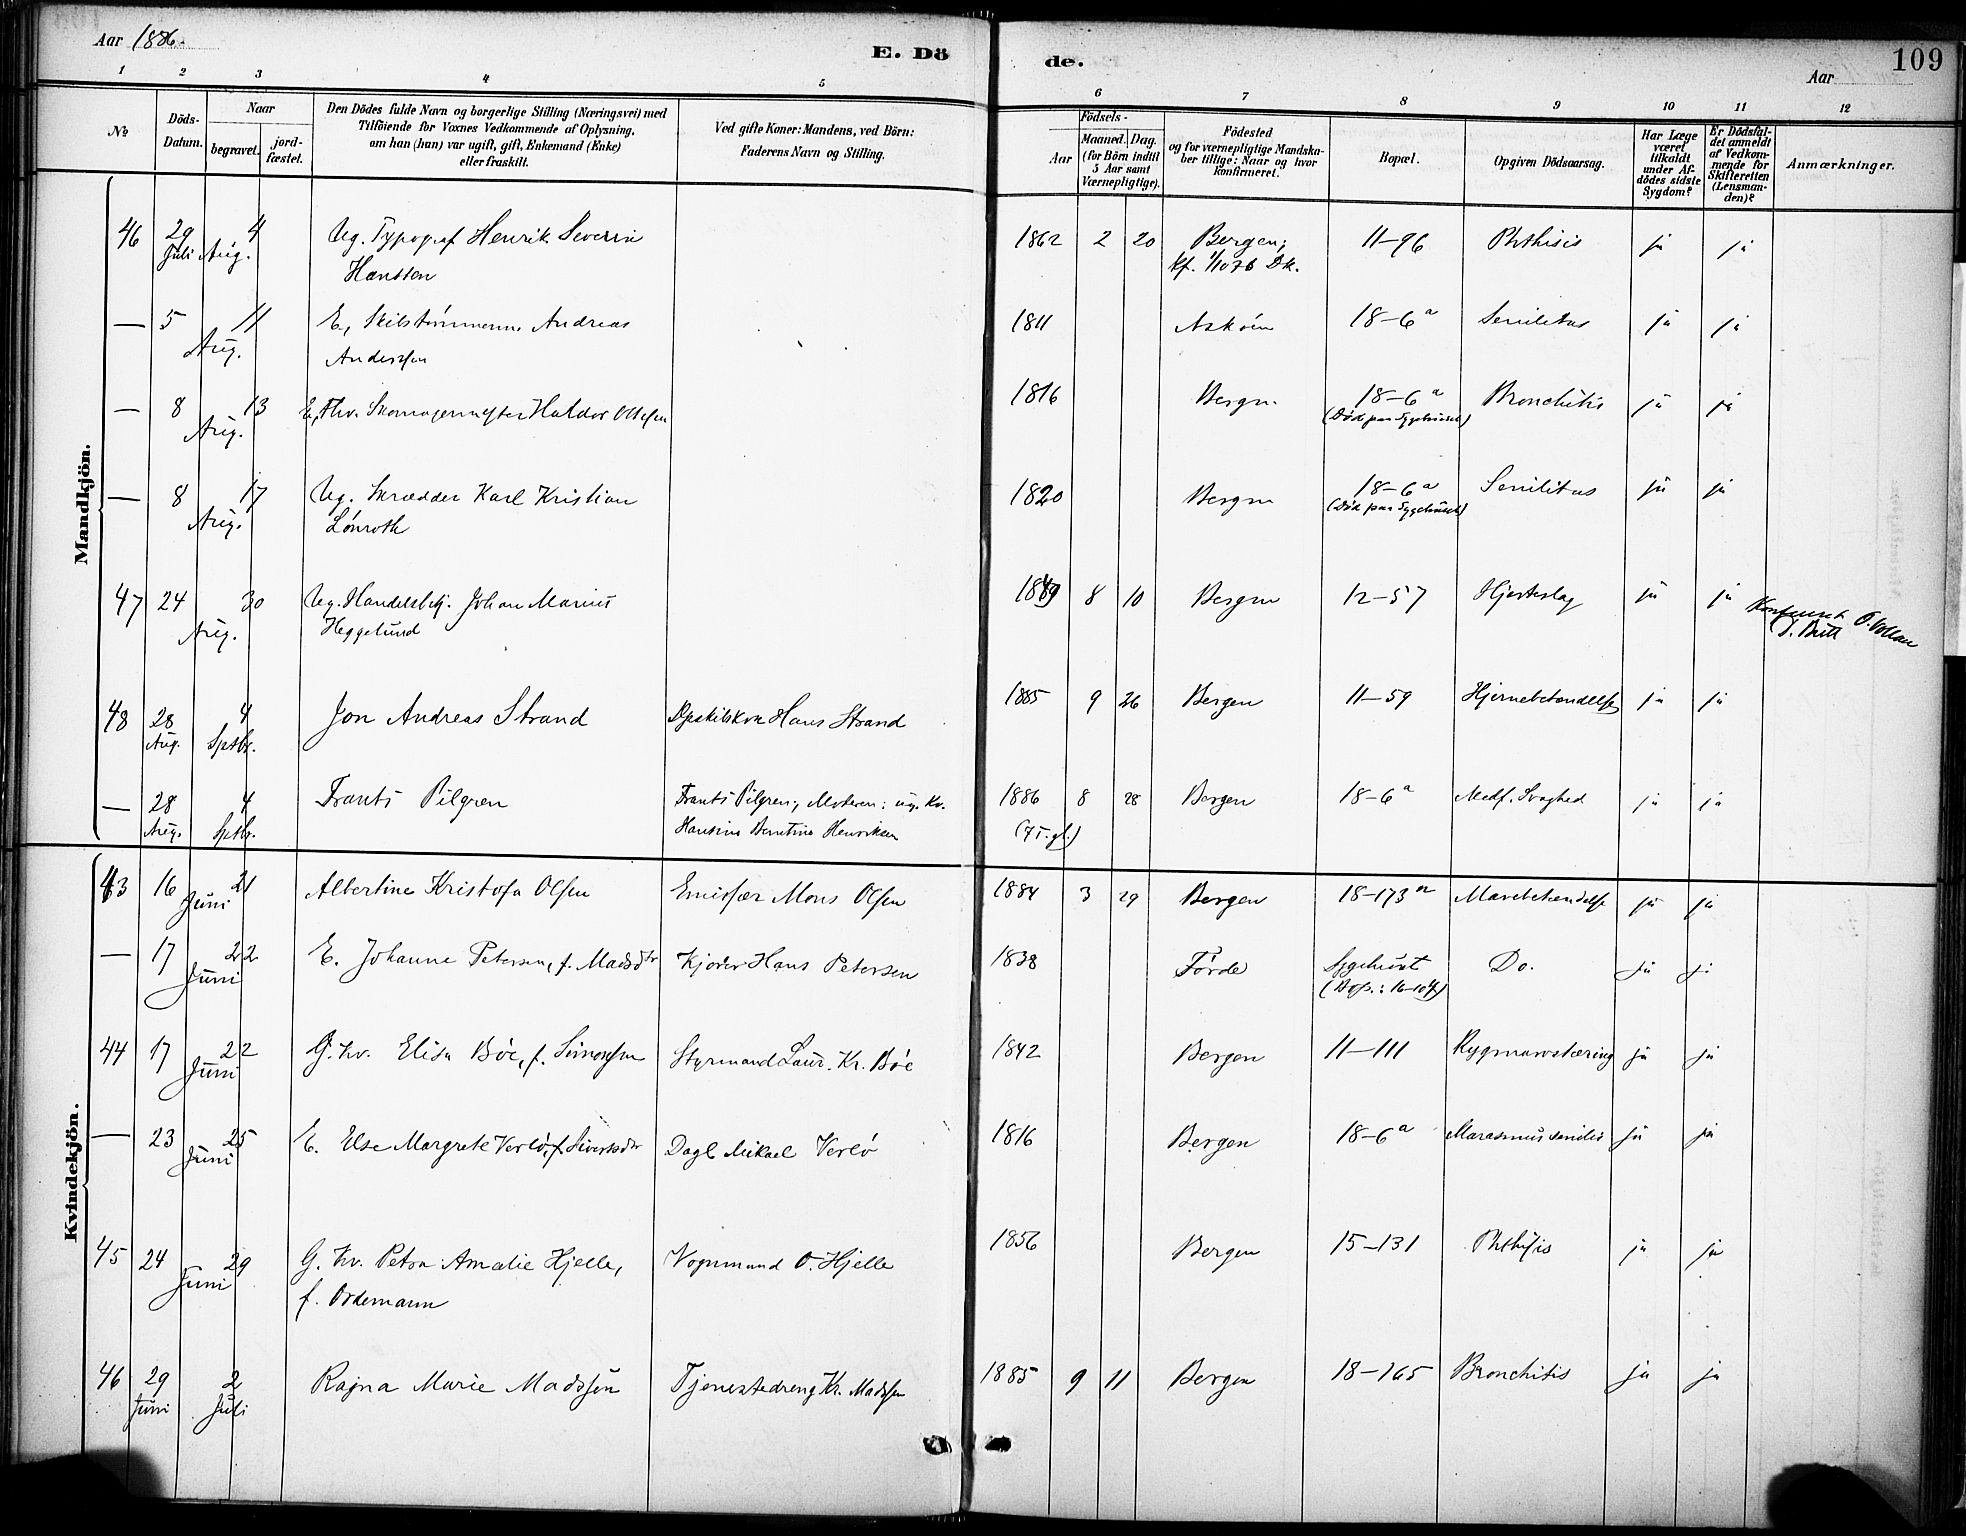 Aar 1886.
E. Dö
de.
109
Aar
1 2 3 4 5 6 7 8 9 10 11 12
No
Döds-
Datum.
Naar
begravet.
jord-
fæstet.
Den Dödes fulde Navn og borgerlige Stilling (Næringsvei) med
Tilföiende for Voxnes Vedkommende af Oplysning,
om han (hun) var ugift, gift, Enkemand (Enke)
eller fraskilt.
Ved gifte Koner: Mandens, ved Börn:
Faderens Navn og Stilling.
Födsels-
Aar
Maaned. Dag.
(for Börn indtil
5 Aar samt
Værnepligtige).
Födested
og for værnepligtige Mandska-
ber tillige: Naar og hvor
konfirmeret.
Bopæl.
Opgiven Dödsaarsag.
Har Læge
været
tilkaldt
under Af-
dödes sidste
Sygdom?
Er Dödsfal-
det anmeldt
af Vedkom-
mende for
Skifteretten
(Lensman-
den)?
Anmærkninger.
Mandkjön.
46 29 4 Ug. Typograf Henrik Severin 1862 2 20 Bergen; 11-96 Phthisis ja ja
Juli Aug. Hansson Kf. 1/10 76 Dk.
— 5 11 E, Skibstømmerm. Andreas 1811 Askøen 18-6a Senilitas ja ja
Aug. Anderssen
— 8 13 E, Fhv. Skomagermester Haldor Ottesen 1816 Bergen 18-6a Bronchitis ja ja
Aug. (Død paa Sygehuset)
— 8 17 Ug. Skrædder Karl Kristian 1820 Bergen 18-6a Senilitas ja ja
Aug. Lønroth (Død paa Sygehuset)
47 24 30 Ug. Handelsbetj. Johan Marius 1849 8 10 Bergen 12-57 Hjerteslag ja ja
Aug. Heggelund O. Vollan
48 28 4 Jon Andreas Strand Hans Strand 1885 9 26 Bergen 11-59 Hjernebetændelse ja ja
Aug. Sptbr.
— 28 4 Frants Pilgren Frants Pilgren; Moderen: ug. Kv. 1886 8 28 Bergen 18-6a Medf. Svaghed ja ja
Aug. Sptbr. Hansine Berntine Henriksen (7 T. gl.)
Kvindekjön.
43 16 21 Albertine Kristofa Olsen Emissær Mons Olsen 1884 3 29 Bergen 18-173a Mavebetændelse ja ja
Juni
— 17 22 E. Johanne Petersen, f. Madsdtr Kjører Hans Petersen 1838 Førde Sygehuset Do. ja ja
Juni
44 17 22 G. Kv. Elisa Bøe, f. Simonsen Styrmand Laur. Kr. Bøe 1842 Bergen 11-111 Rygmarvstæring ja ja
Juni
— 23 25 E. Else Margrete Verlø, f. Sivertsdtr Dagl. Mikael Verlø 1816 Bergen 18-6a Marasmus senilis ja ja
Juni
45 24 29 G. Kv. Petra Amalie Hjelle, Vognmand O. Hjelle 1856 Bergen 15-131 Phthisis ja ja
Juni f. Ordemann
46 29 2 Ragna Marie Madssen Tjenestedreng Kr. Madssen 1885 9 11 Bergen 18-165 Bronchitis ja ja
Juni Juli